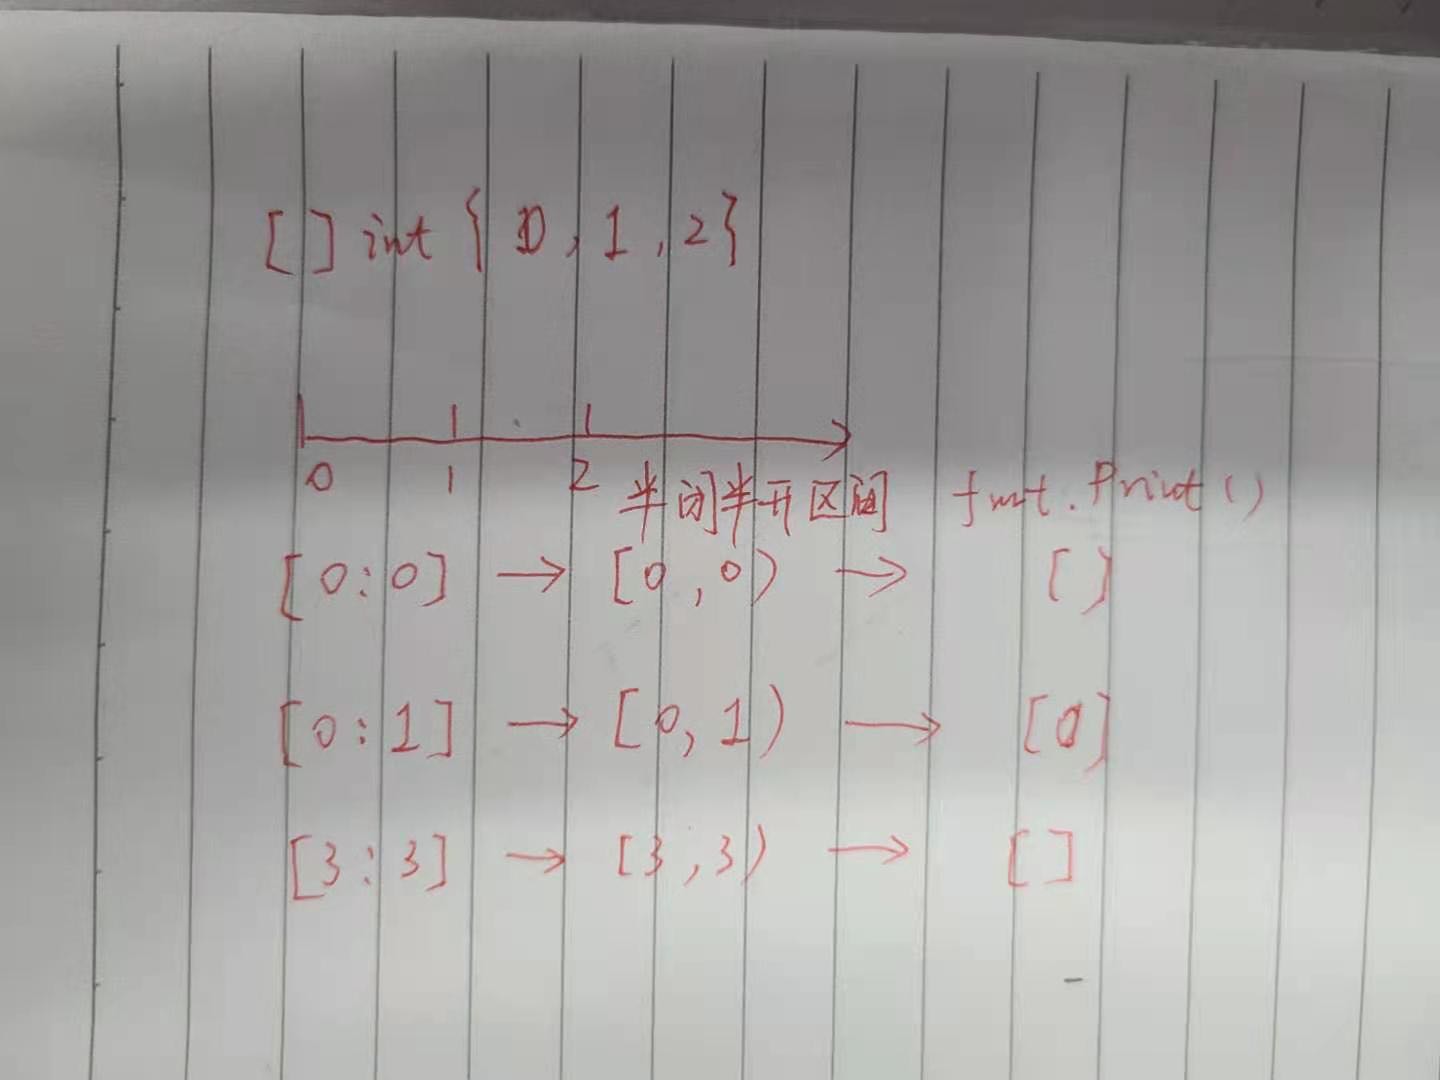 [ ] int { 0, 1, 2}
0 1 2 半闭半开区间 fmt.Print()
[0:0] → [0,0) → [ ]
[0:1] → [0,1) → [0]
[3:3] → [3,3) → [ ]